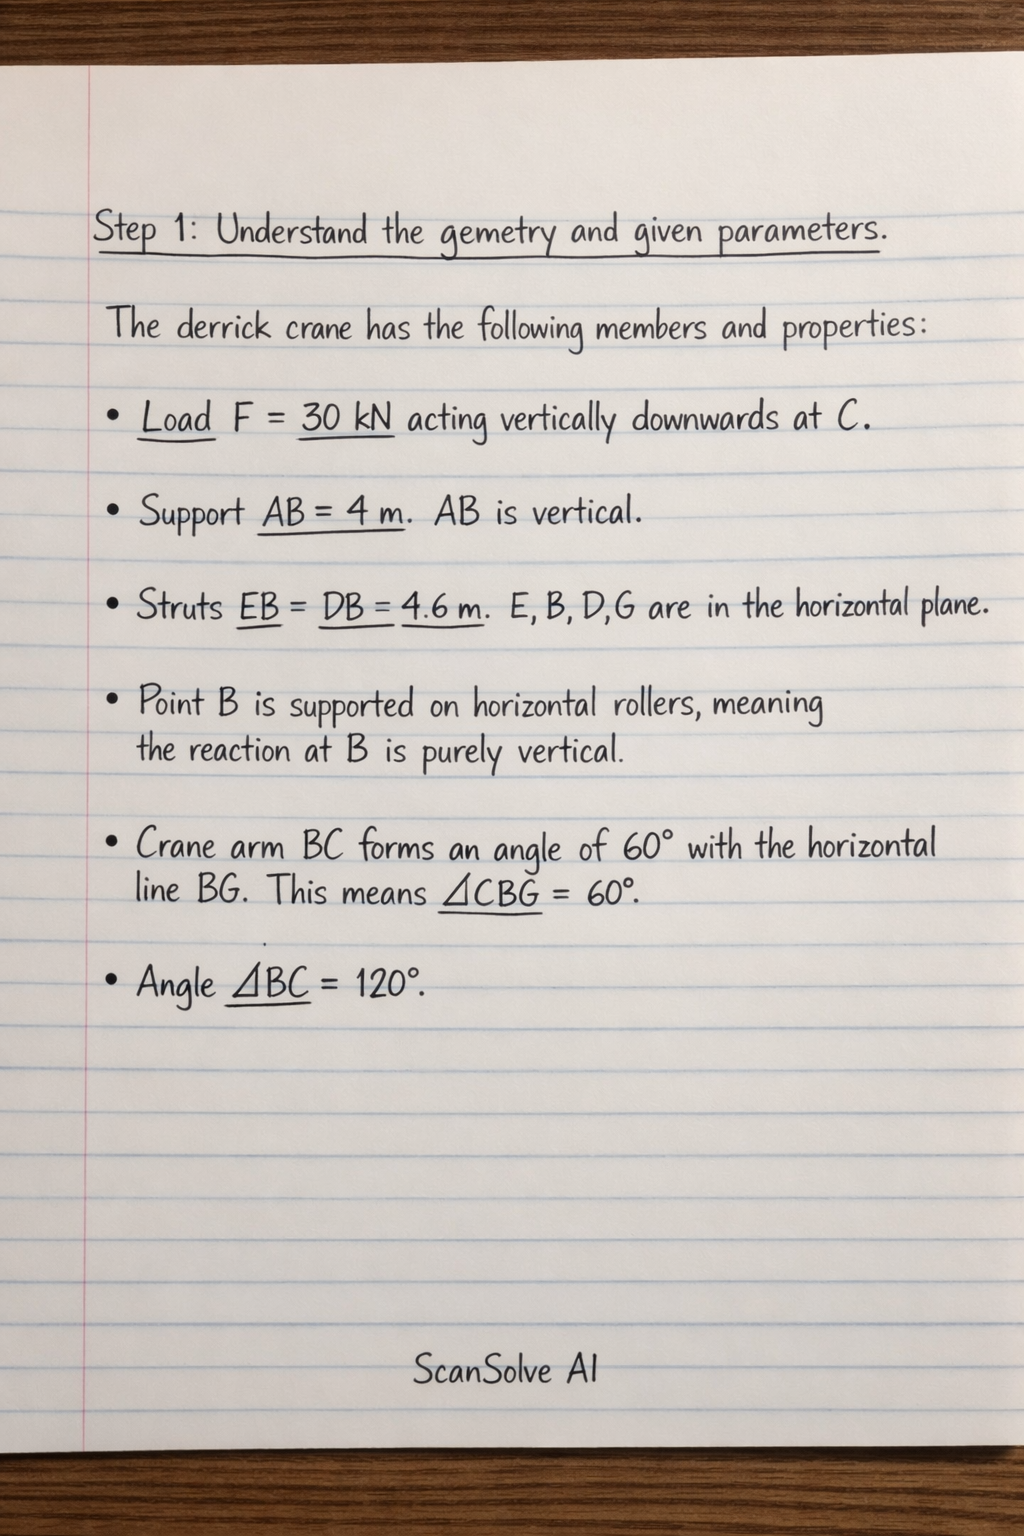 Step 1: Understand the gemetry and given parameters.
The derrick crane has the following members and properties:
• Load F = 30 kN acting vertically downwards at C.
• Support AB = 4 m. AB is vertical.
• Struts EB = DB = 4.6 m. E, B, D, G are in the horizontal plane.
• Point B is supported on horizontal rollers, meaning
the reaction at B is purely vertical.
• Crane arm BC forms an angle of 60° with the horizontal
line BG. This means ∠CBG = 60°.
• Angle ∠BC = 120°.
ScanSolve AI